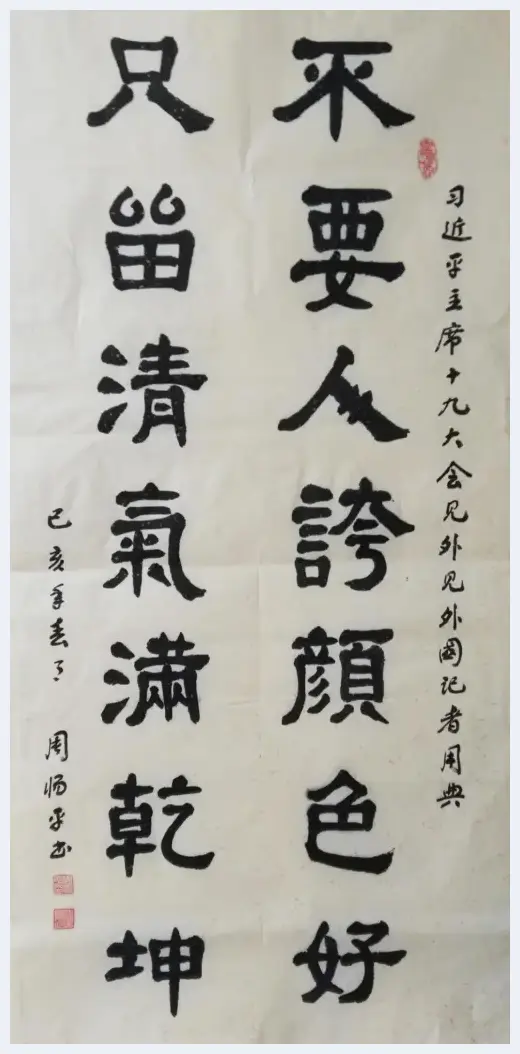 习近平主席十九大会见外见外国记者用典
不要人誇顔色好
只留清氣滿乾坤
己亥年春
周平书